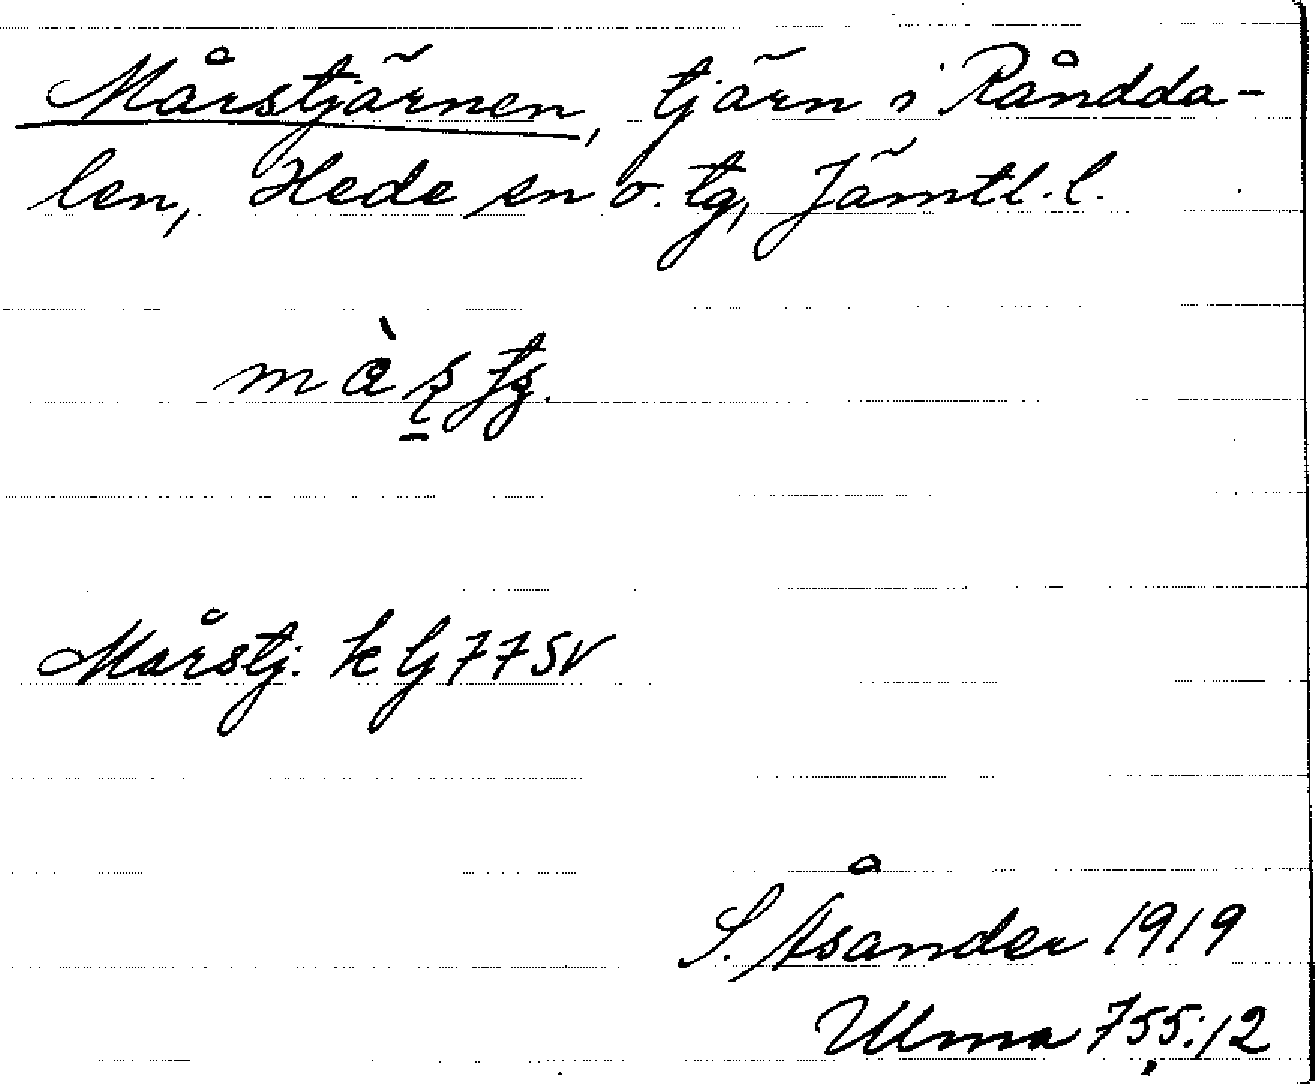 Mårstjärnen, tjärn i Råndda-
len, Hede sn o. tg, Jämtl. l.
Mårstj. k Gj 77 SV
S. Åsander 1919
Ulma 755:12